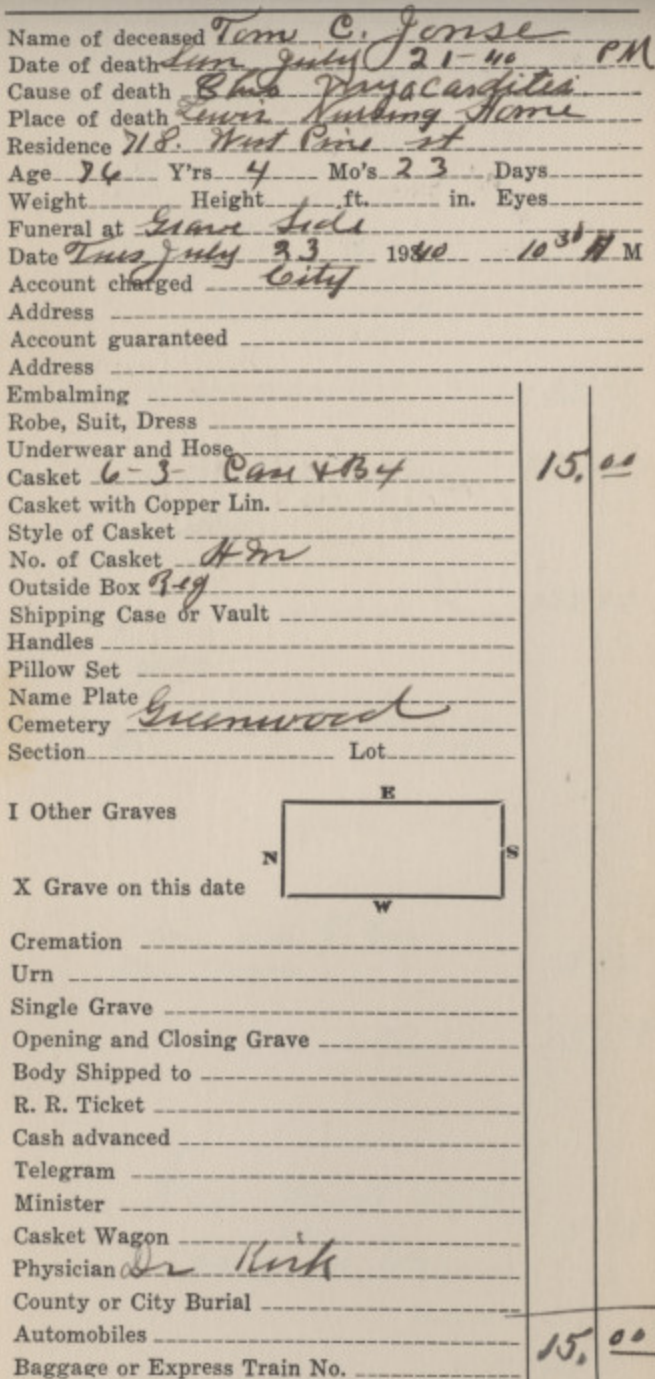 Name of deceased Tom C. Jonse
Date of death Sun July 21-40 PM
Cause of death Myocarditis
Place of death Lewis Nursing Home
Residence 718. West Pine st
Age 76 Y'rs 4 Mo's 23 Days
Weight Height ft. in. Eyes
Funeral at Grave Side
Date Tues July 23 1940 10 30 A M
Account charged City
Address
Account guaranteed
Address
Embalming
Robe, Suit, Dress
Underwear and Hose
Casket 6-3 Case & Bx 15.00
Casket with Copper Lin.
Style of Casket
No. of Casket
Outside Box Reg
Shipping Case or Vault
Handles
Pillow Set
Name Plate
Cemetery Greenwood
Section Lot
E
I Other Graves
N S
X Grave on this date
W
Cremation
Urn
Single Grave
Opening and Closing Grave
Body Shipped to
R. R. Ticket
Cash advanced
Telegram
Minister
Casket Wagon
Physician Dr Kirk
County or City Burial
Automobiles 15.00
Baggage or Express Train No.